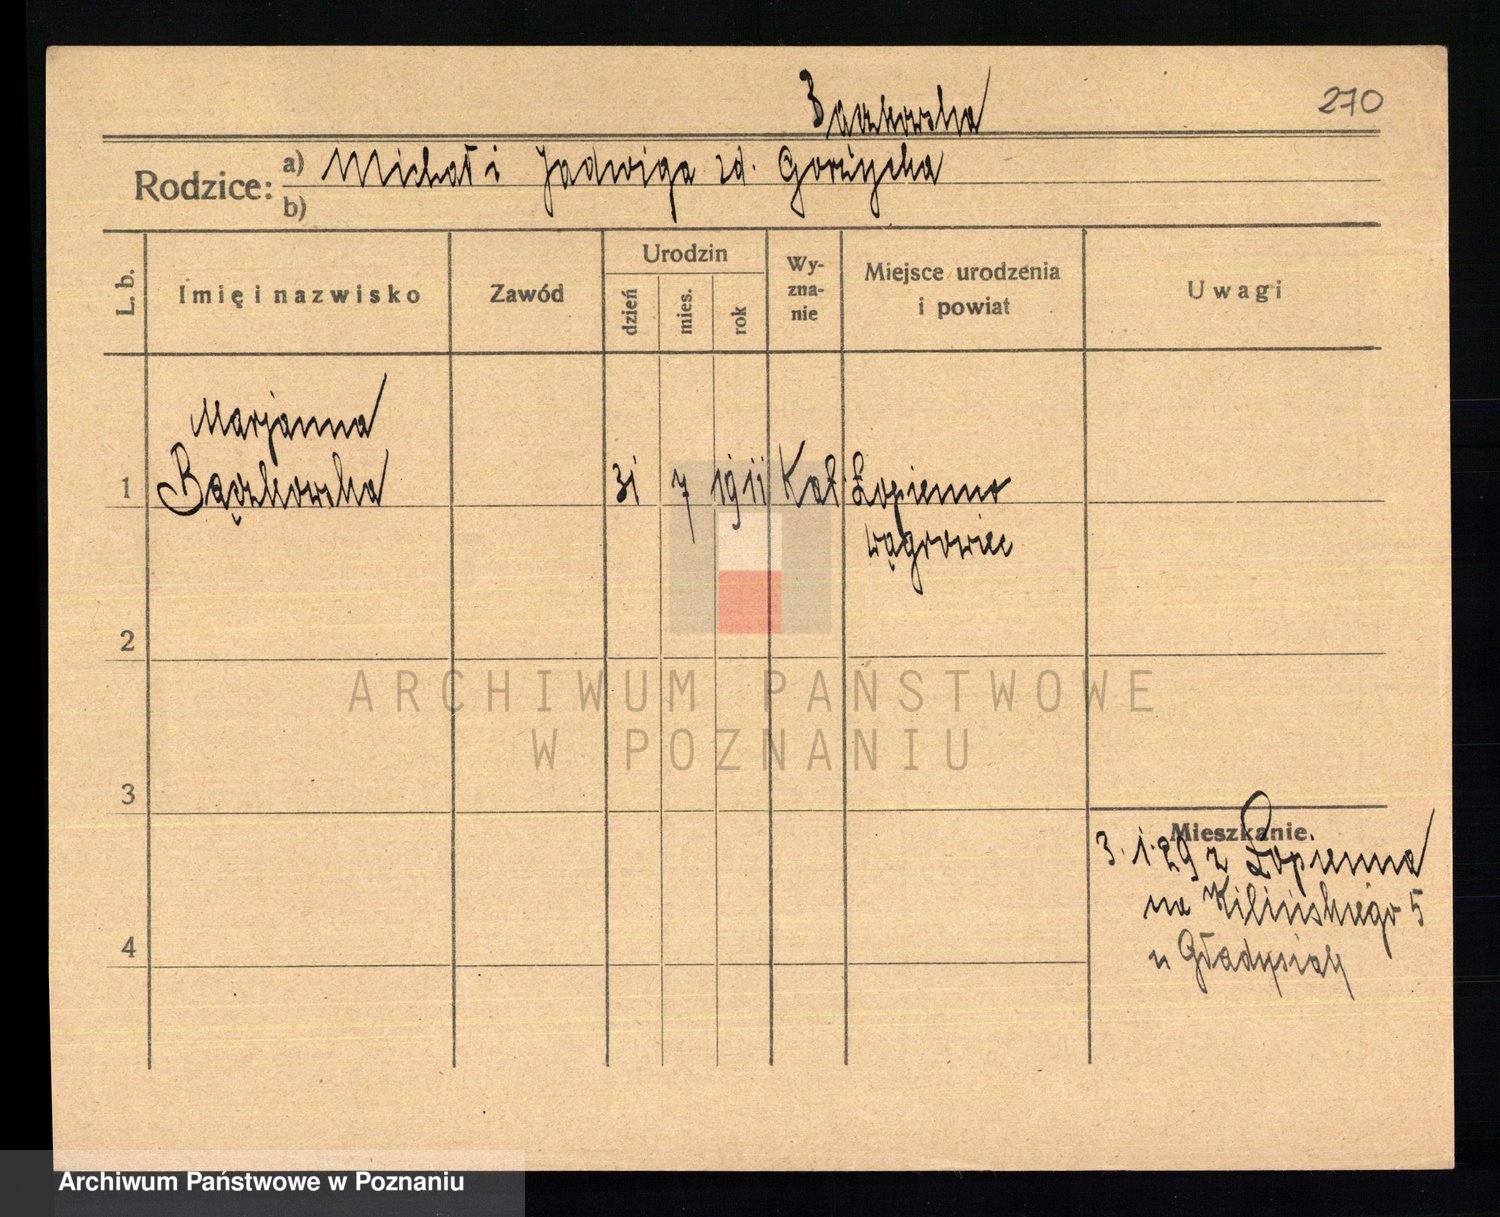 Bączkowska
270
Rodzice:
a) Michał i Jadwiga zd. Gorzycka
b)
L. b.
Imię i nazwisko
Zawód
Urodzin
dzień
mies.
rok
Wy-
zna-
nie
Miejsce urodzenia
i powiat
Uwagi
Marjanna
1 Bączkowska 31 7 1911 Kat. Łopienno
wągrowiec
2
ARCHIWUM PAŃSTWOWE
W POZNANIU
3
Mieszkanie.
3. 1. 29 z Łopienna
na Kilińskiego 5
4
u
Archiwum Państwowe w Poznaniu